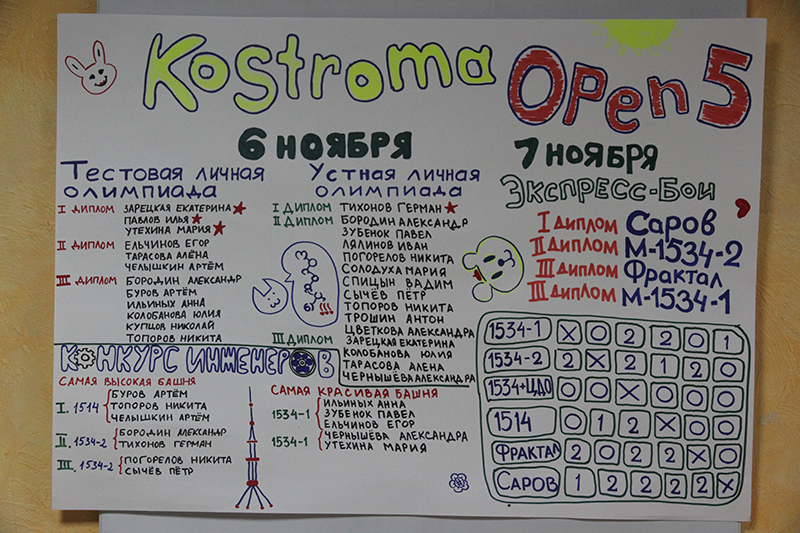 Kostroma Open 5
6 НОЯБРЯ
Тестовая личная олимпиада
I диплом Зарецкая Екатерина
Павлов Илья
Утехина Мария
II диплом Ельчинов Егор
Тарасова Алёна
Челышкин Артём
III диплом Бородин Александр
Буров Артём
Ильиных Анна
Колобанова Юлия
Купцов Николай
Топоров Никита
Устная личная олимпиада
I диплом Тихонов Герман
II диплом Бородин Александр
Зубенок Павел
Лялинов Иван
Погорелов Никита
Солодуха Мария
Спицын Вадим
Сычёв Пётр
Топоров Никита
Трошин Антон
Цветкова Александра
III диплом Зарецкая Екатерина
Колобанова Юлия
Тарасова Алена
Чернышёва Александра
Конкурс инженеров
Самая высокая башня
I. 1514 Буров Артём
Топоров Никита
Челышкин Артём
II. 1534-2 Бородин Александр
Тихонов Герман
III. 1534-2 Погорелов Никита
Сычёв Пётр
Самая красивая башня
1534-1 Ильиных Анна
Зубенок Павел
Ельчинов Егор
1534-1 Чернышёва Александра
Утехина Мария
7 НОЯБРЯ
Экспресс-бои
I диплом Саров
II диплом М-1534-2
III диплом Фрактал
III диплом М-1534-1
1534-1 X 0 2 2 0 1
1534-2 2 X 2 1 2 0
1534+ЦДО 0 0 X 0 0 0
1514 0 1 2 X 0 0
Фрактал 2 0 2 2 X 0
Саров 1 2 2 2 2 X